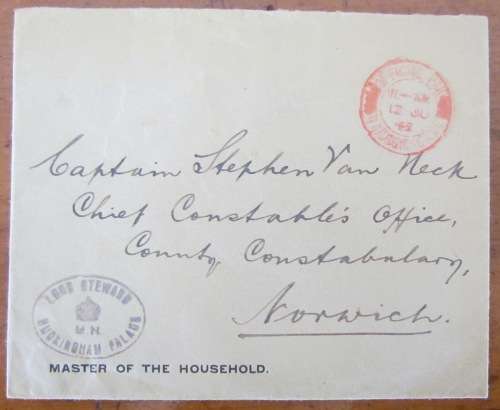 OFFICIAL PAID
11-
12 JU
42
BUCKINGHAM
Captain Stephen Van Neck
Chief Constable's Office,
County Constabulary,
Norwich.
LORD STEWARD
M.H.
BUCKINGHAM PALACE
MASTER OF THE HOUSEHOLD.